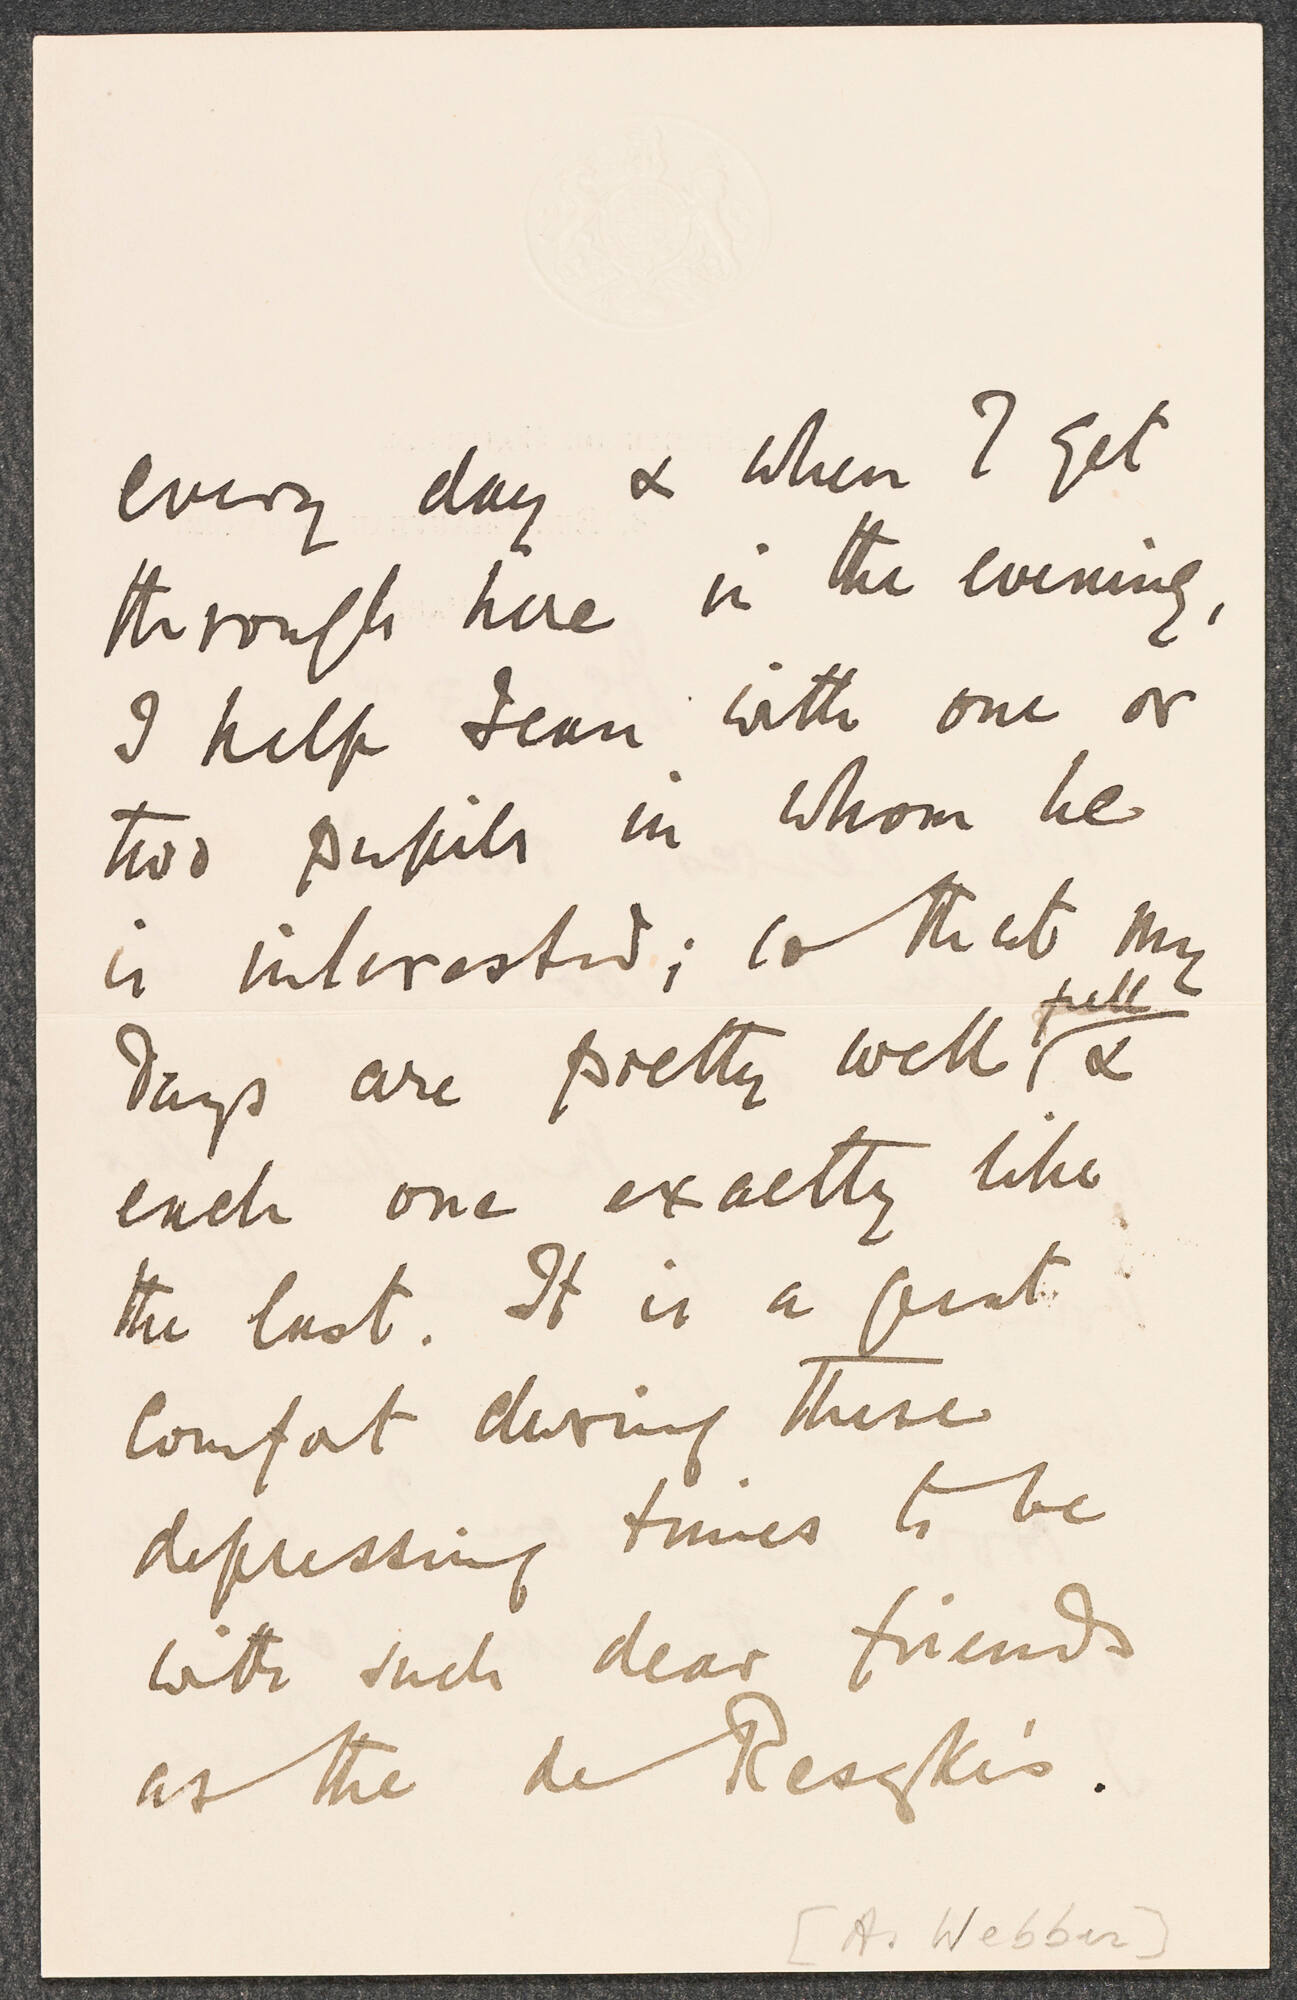 every day & when I get
through here in the evening,
I help Jean with one or
two pupils in whom he
is interested; so that my
full
days are pretty well &
each one exactly like
the last. It is a great
comfort during these
depressing times to be
with such dear friends
as the de Reszke's.
[A. Webber]